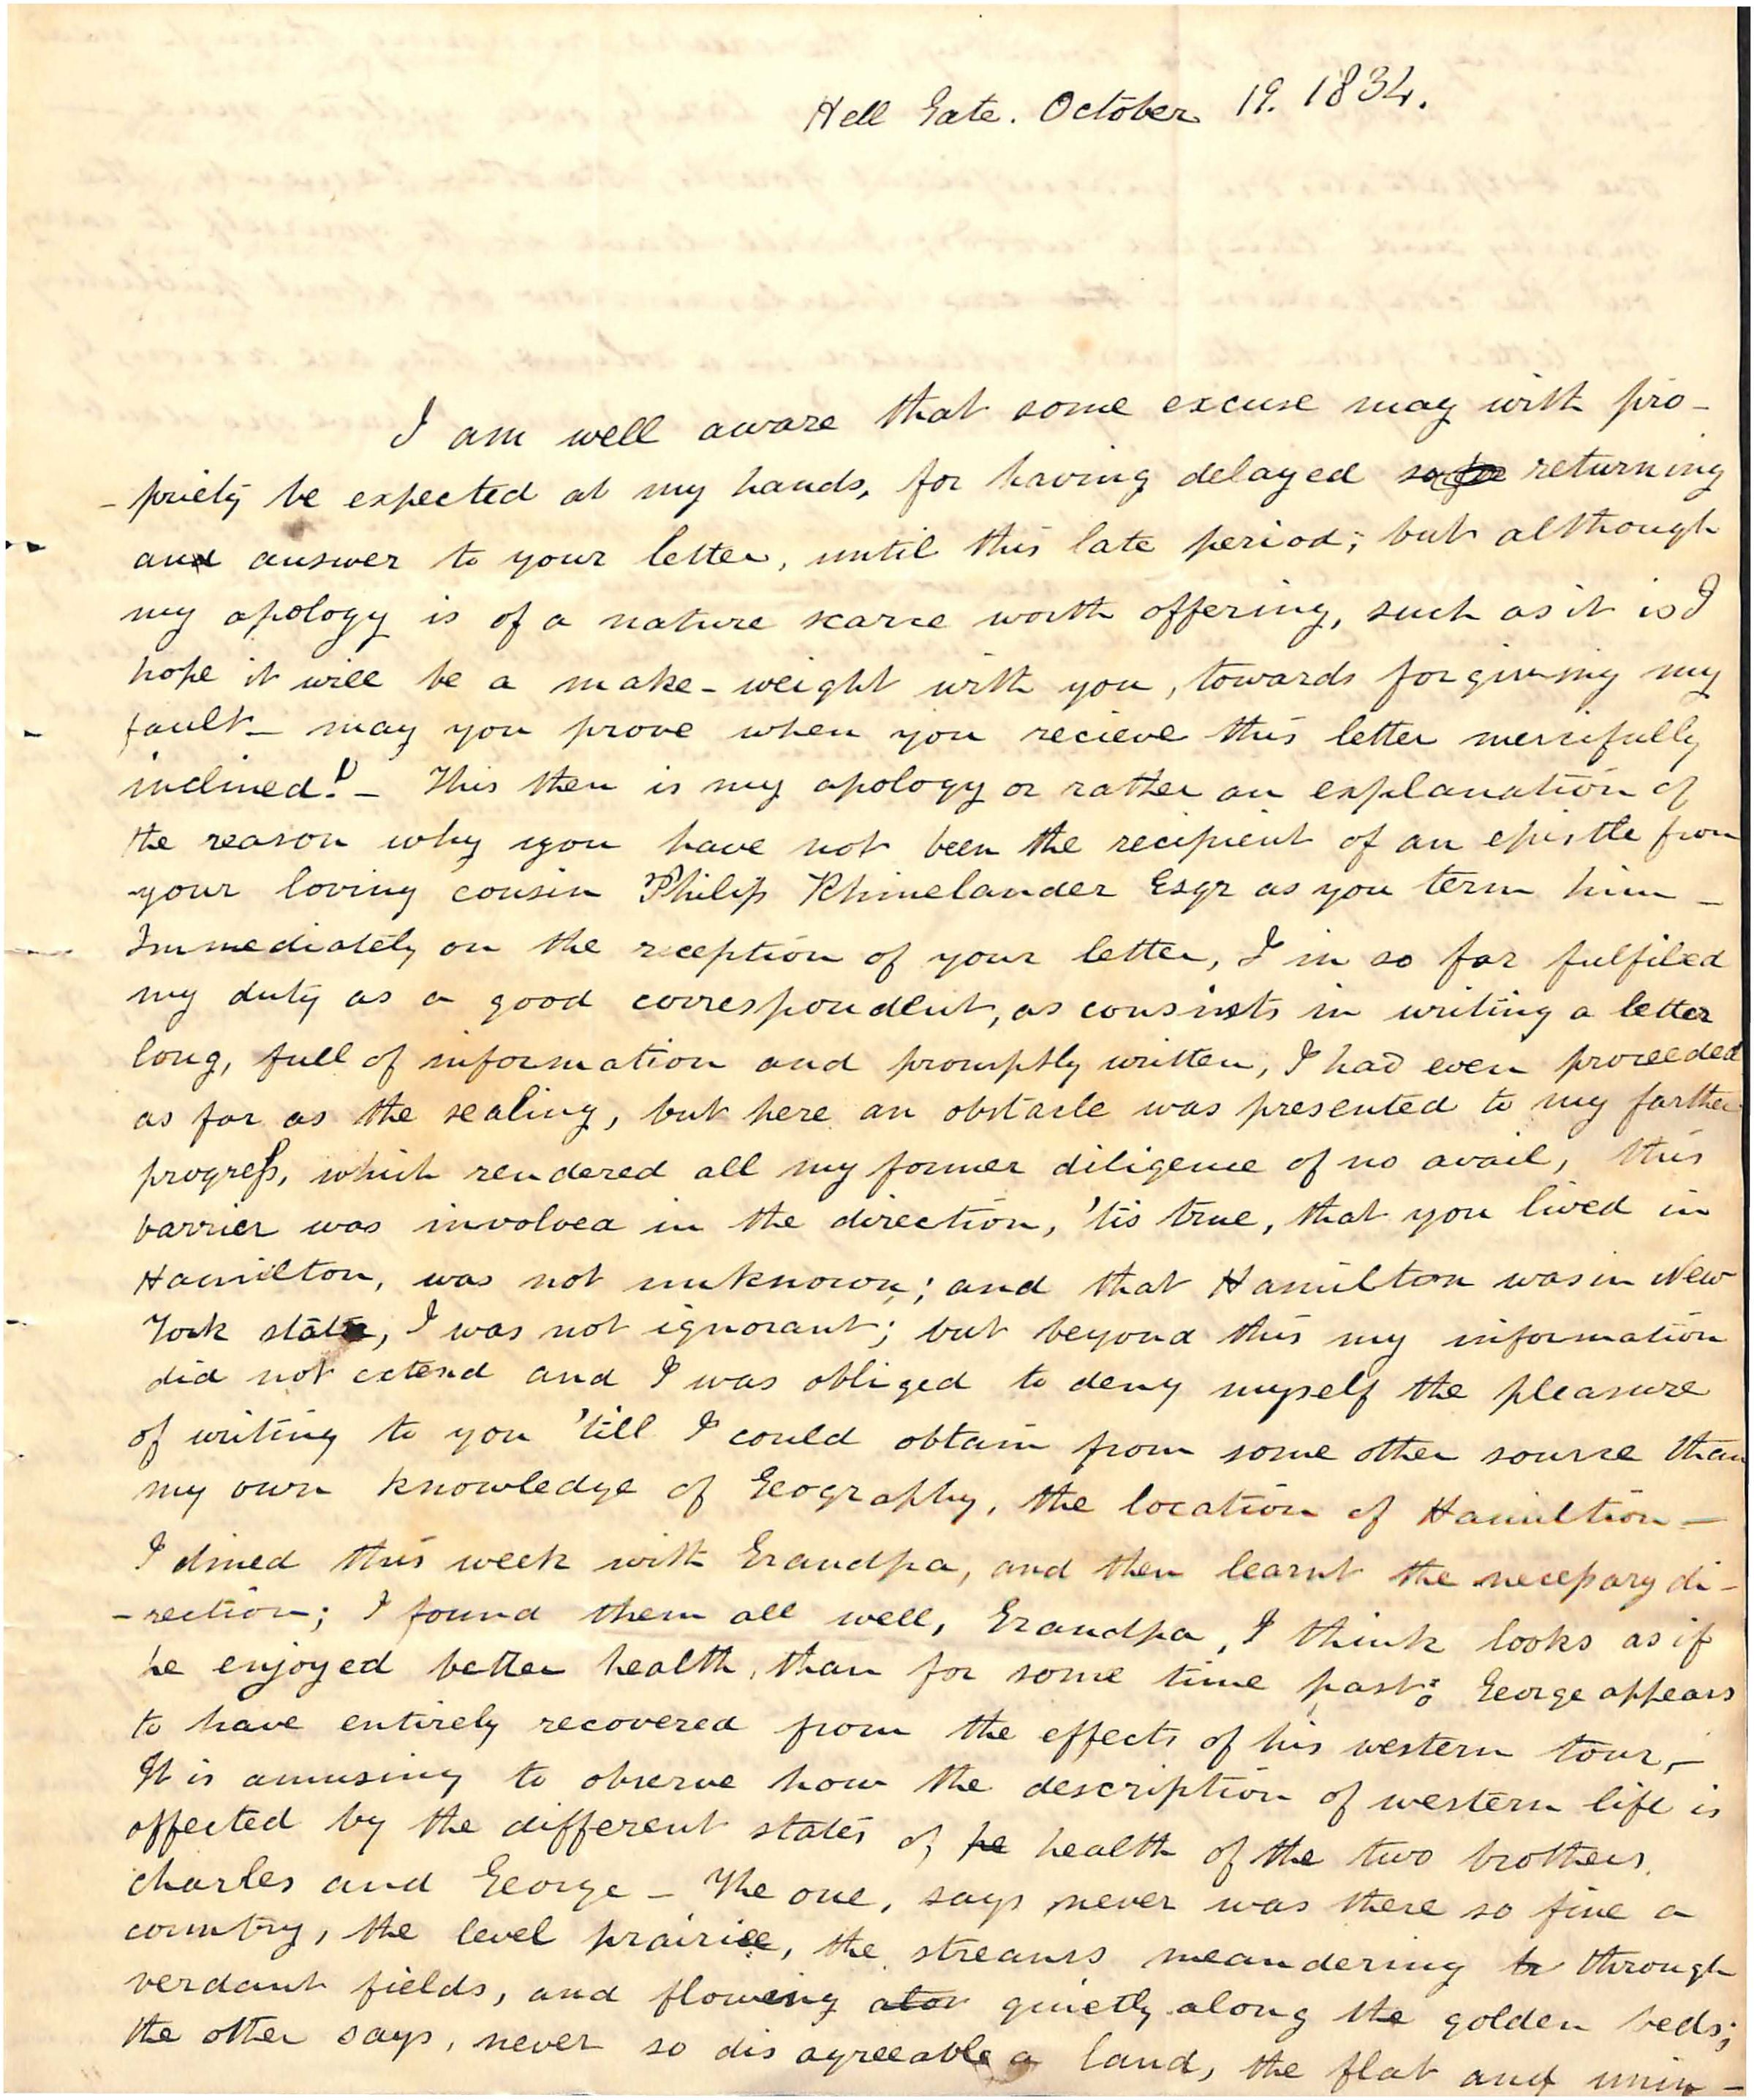 Hell Gate. October 19. 1834.
I am well aware that some excuse may with pro-
-priety be expected at my hands, for having delayed returning
and answer to your letter, until this late period; but although
my apology is of a nature scarce worth offering, such as it is I
hope it will be a make-weight with you, towards forgiving my
fault- may you prove when you recieve this letter mercifully
inclined!- This then is my apology or rather an explanation of
the reason why you have not been the recipient of an epistle from
your loving cousin Philip Rhinelander Esqr as you term him -
Immediately on the reception of your letter, I in so far fulfiled
my duty as a good correspondent, as consists in writing a letter
long, full of information and promptly written, I had even proceeded
as far as the sealing, but here an obstacle was presented to my farther
progress, which rendered all my former diligence of no avail, this
barrier was involved in the direction, 'tis true, that you lived in
Hamilton, was not unknown; and that Hamilton was in New
York state, I was not ignorant; but beyond this my information
did not extend and I was obliged to deny myself the pleasure
of writing to you 'till I could obtain from some other source than
my own knowledge of Geography, the location of Hamiltion-
I dined this week with Grandpa, and then learnt the necessary di-
-rection; I found them all well, Grandpa, I think looks as if
he enjoyed better health, than for some time past: George appears
to have entirely recovered from the effects of his western tour,-
It is amusing to observe how the description of western life is
affected by the different states of he health of the two brothers.
Charles and George - The one, says never was there so fine a
country, the level prairiee, the streams meandering tr through
verdant fields, and flowing alor quietly along the golden beds;
the other says, never so disagreeable a land, the flat and unin-